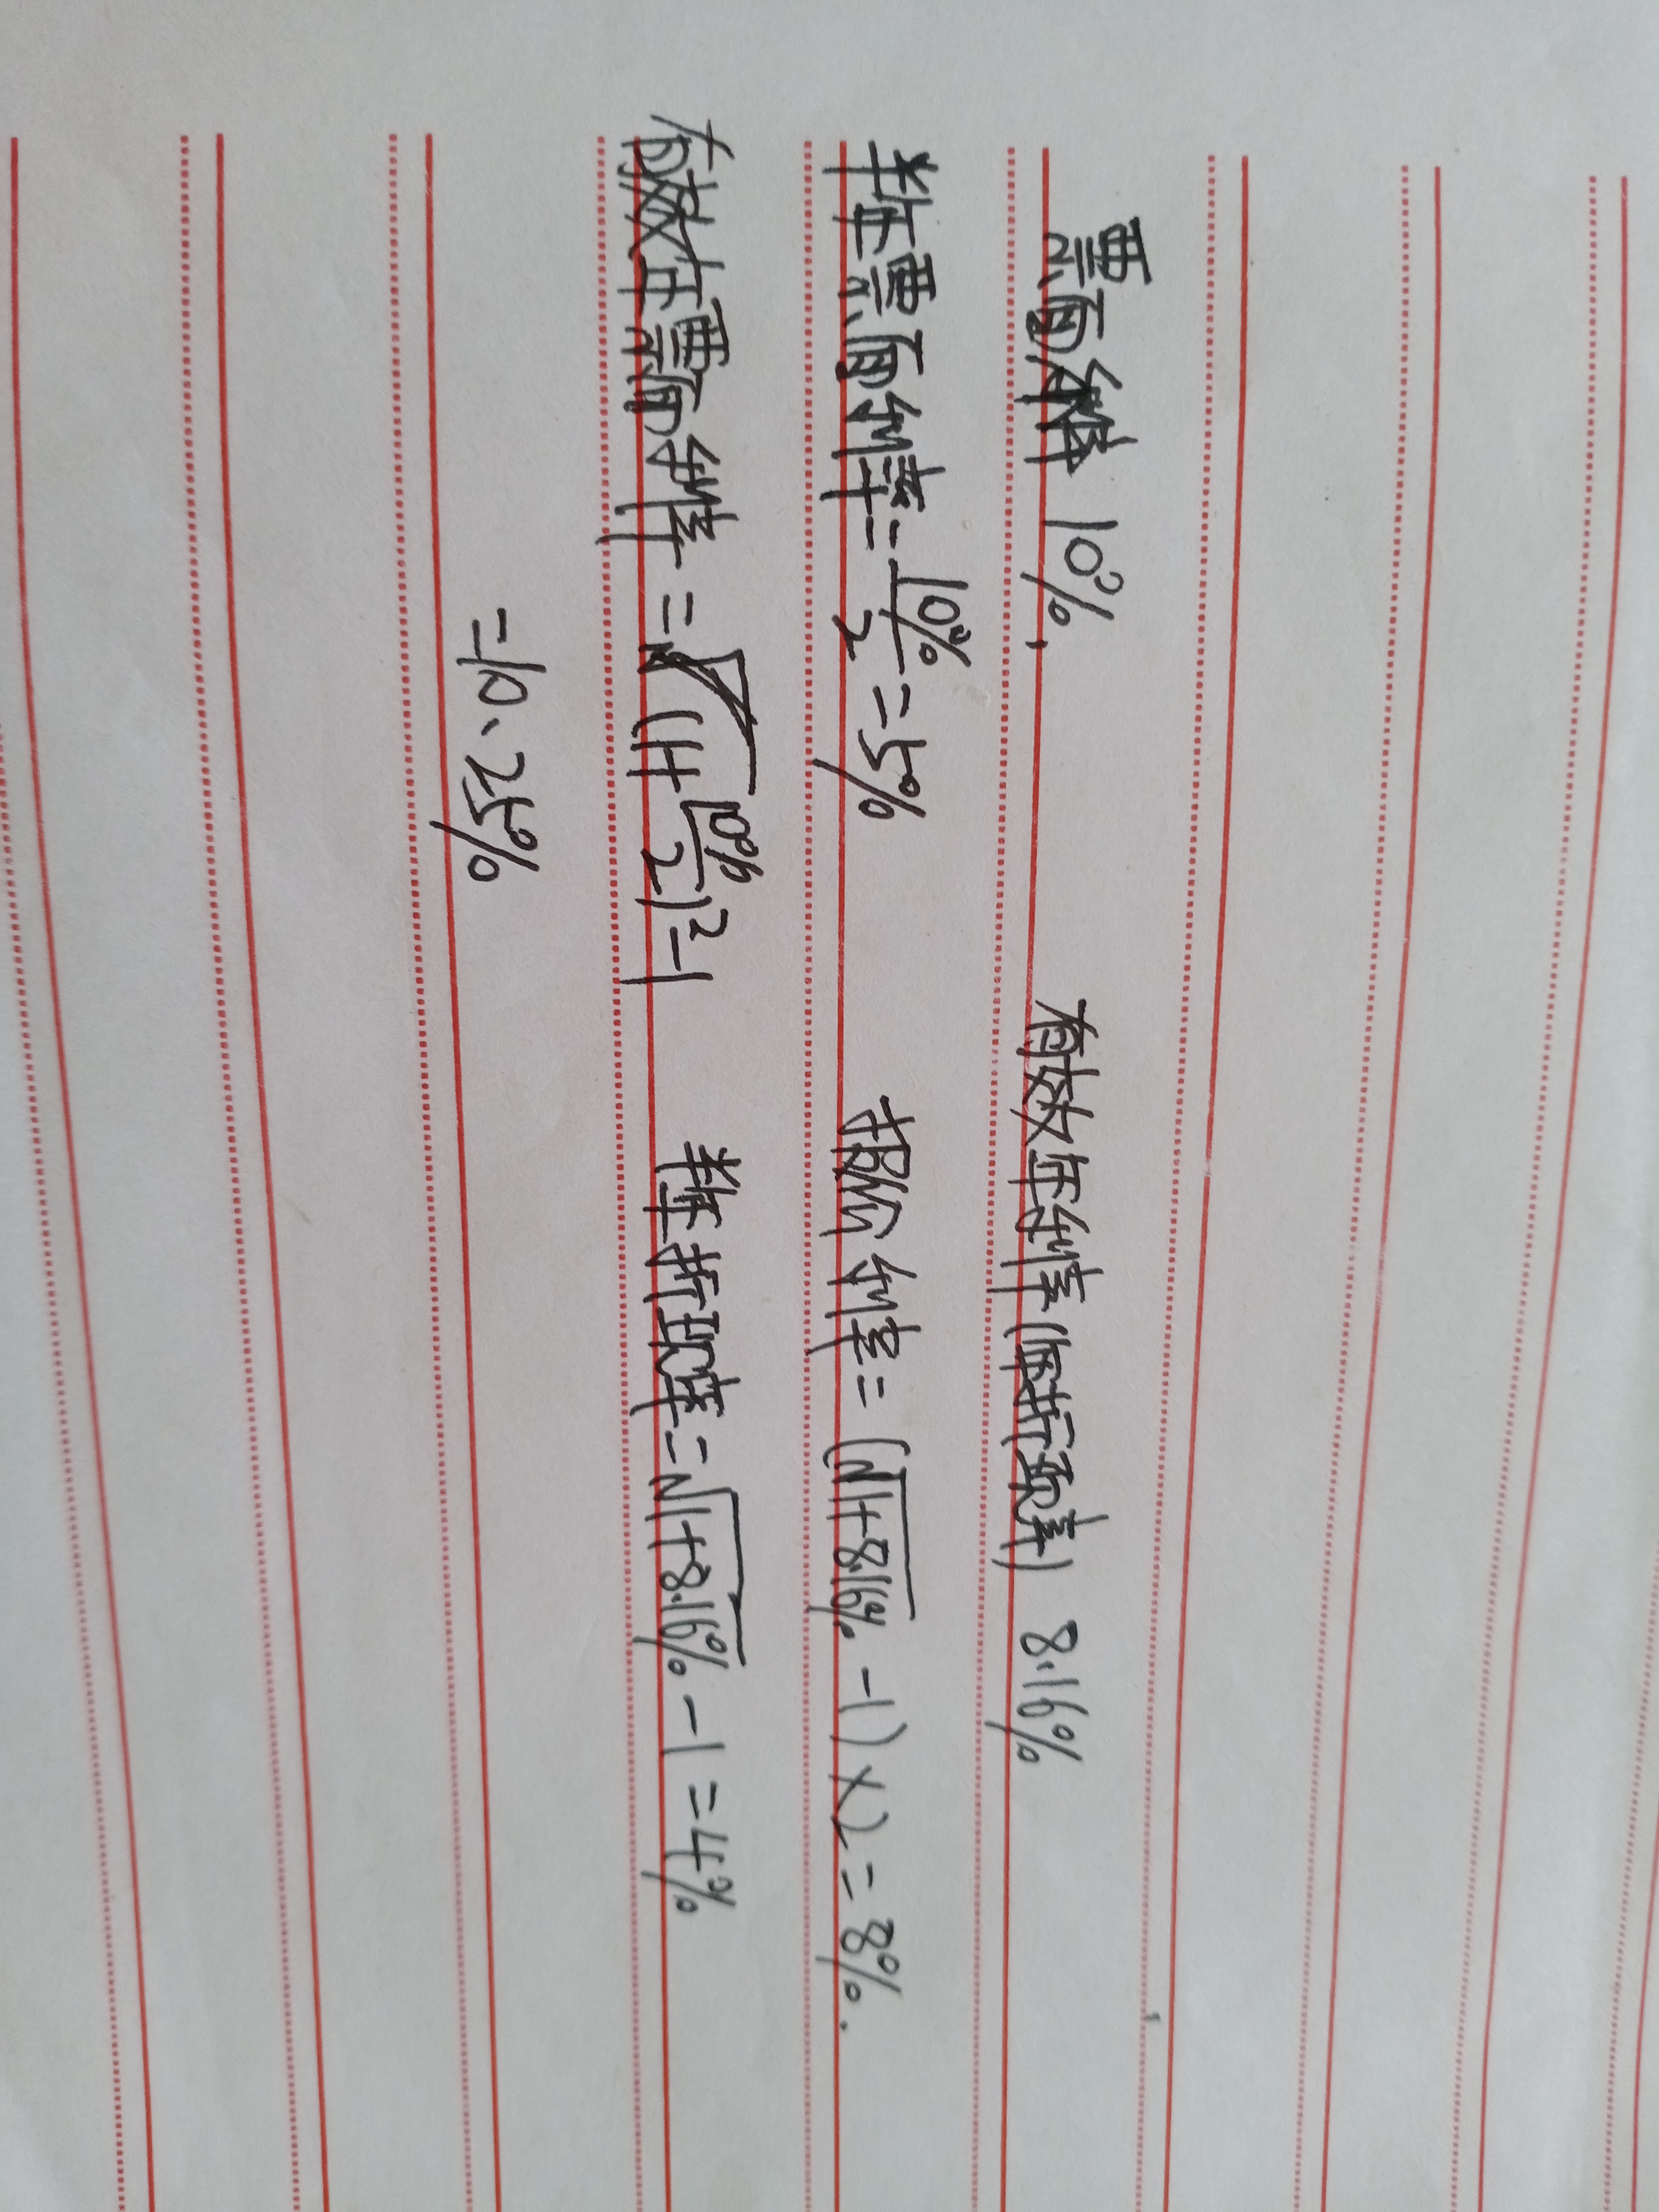 票面利率 10%,
有效年利率(年折现率) 8.16%
半年票面利率=10%/2=5%
报价利率=(√1+8.16% -1)×2=8%.
有效年票面利率=(1+10%/2)²-1
半年折现率=√1+8.16% -1=4%
=10.25%